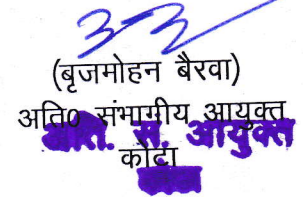 (बृजमोहन बैरवा)
अति० संभागीय आयुक्त
अति. सं. आयुक्त
कोटा